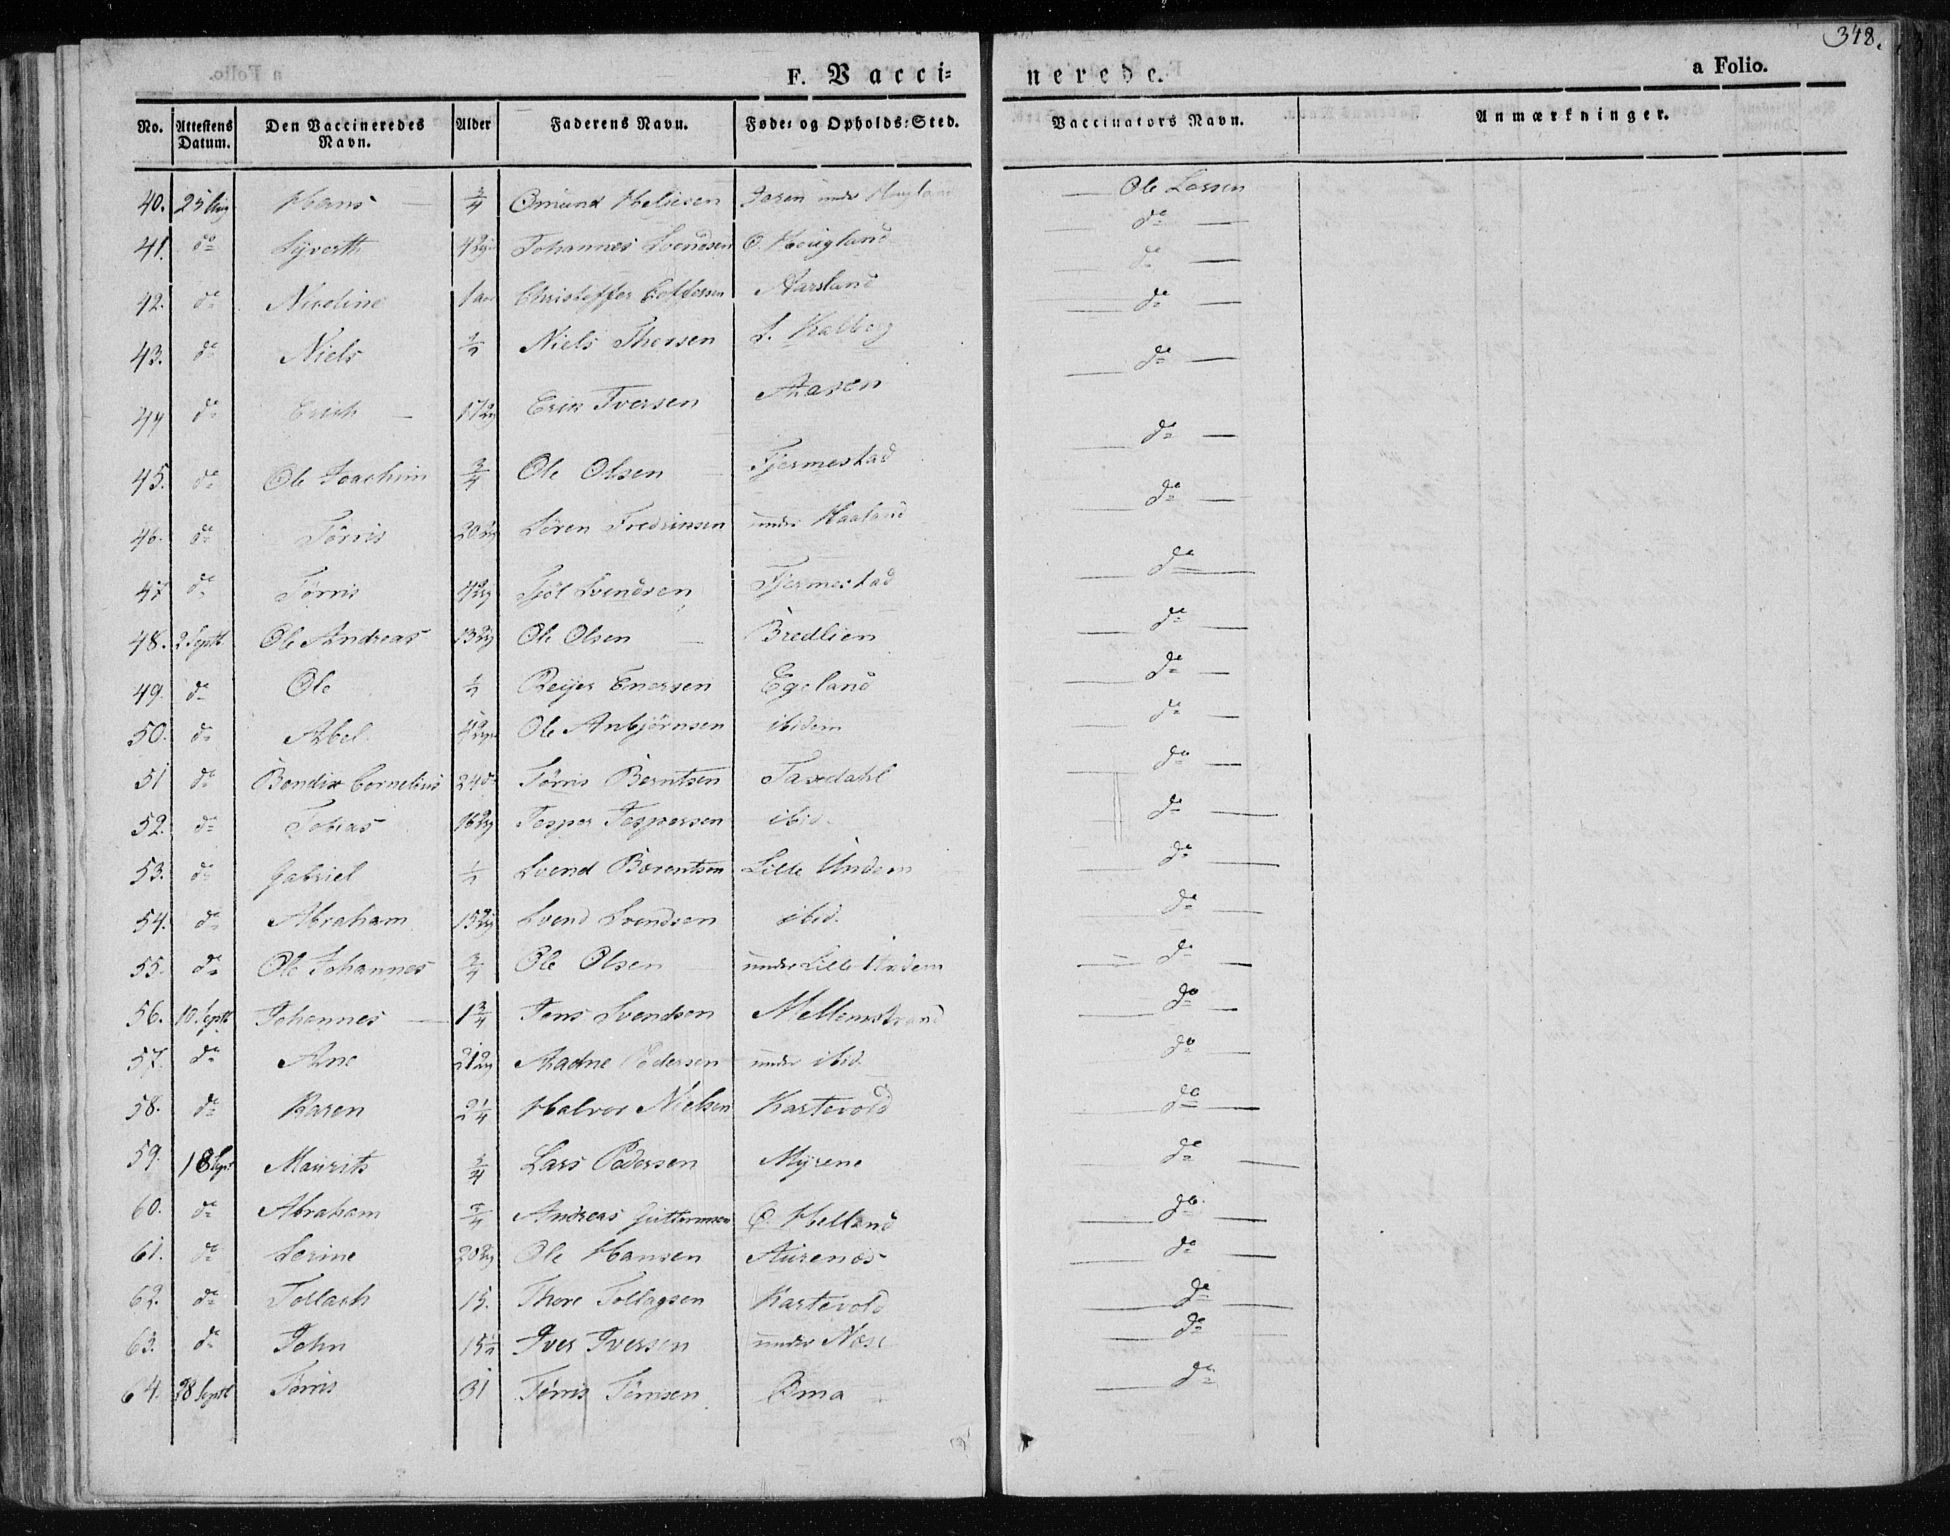 348.
F. Vaccinerede. a Folio.
No. Attestens Datum. Den Vaccineredes Navn. Alder Faderens Navn. Føde= og Opholds=Sted. Vaccinators Navn. Anmærkninger.
40. 25 Aug Hans — 3/4 Omund Heljesen under Hugland — Ole Larsen
41. do Syverth Johannes Svendsen O. Hougland do —
42. do 1 aar Christoffer Aarsland do —
43. do Niels 1/2 Niels Thorsen S. Kalberg do —
44 do Erich — 17 Erik Iversen Aasen do —
45. do Ole Joachim 3/4 Ole Olsen — Tjermestad do —
46. do Tørris 20 Sören Fredriksen under Haaland do —
47 do Tørris Svendsen Tjermestad do —
48. 2 Septb Ole Andreas 13 Ole Olsen — Bredlien do —
49. do Ole 1/2 Reijer Enersen Egeland do —
50. do Abel Ole Anbjørnsen ibidem do —
51 do Bendix Cornelius 24 do Tørris Berntsen Taxdahl do —
52. do Tobias 16 Jesper Jespersen ibid. do —
53. do Gabriel 1/2 Svend Berentsen Lille Undem do —
54. do Abraham 15 Svend Svendsen ibid. do —
55. do Ole Johannes 3/4 Ole Olsen — under Lille Undem do —
56. 10 Septb Johannes — 1 3/4 Jens Svendsen Mellemstrand do —
57. do Ane 21 Aadne Pedersen under ibid. do —
58. do Karen 2 1/4 Halvor Nielsen Kartevold do —
59. 18 Sept Maurits 3/4 Lars Pedersen Myrene do —
60. do Abraham 3/4 Andreas Guttormsen O. Helland do. —
61. do Serine 20 Ole Hansen Aurenes do —
62. do Tollach 15. Thore Tollagsen Kartevold do —
63. do John 15 1/2 Iver Iversen under Nese do —
64. 28 Septb Tørris 31 Tørris Tørrisen Oma do